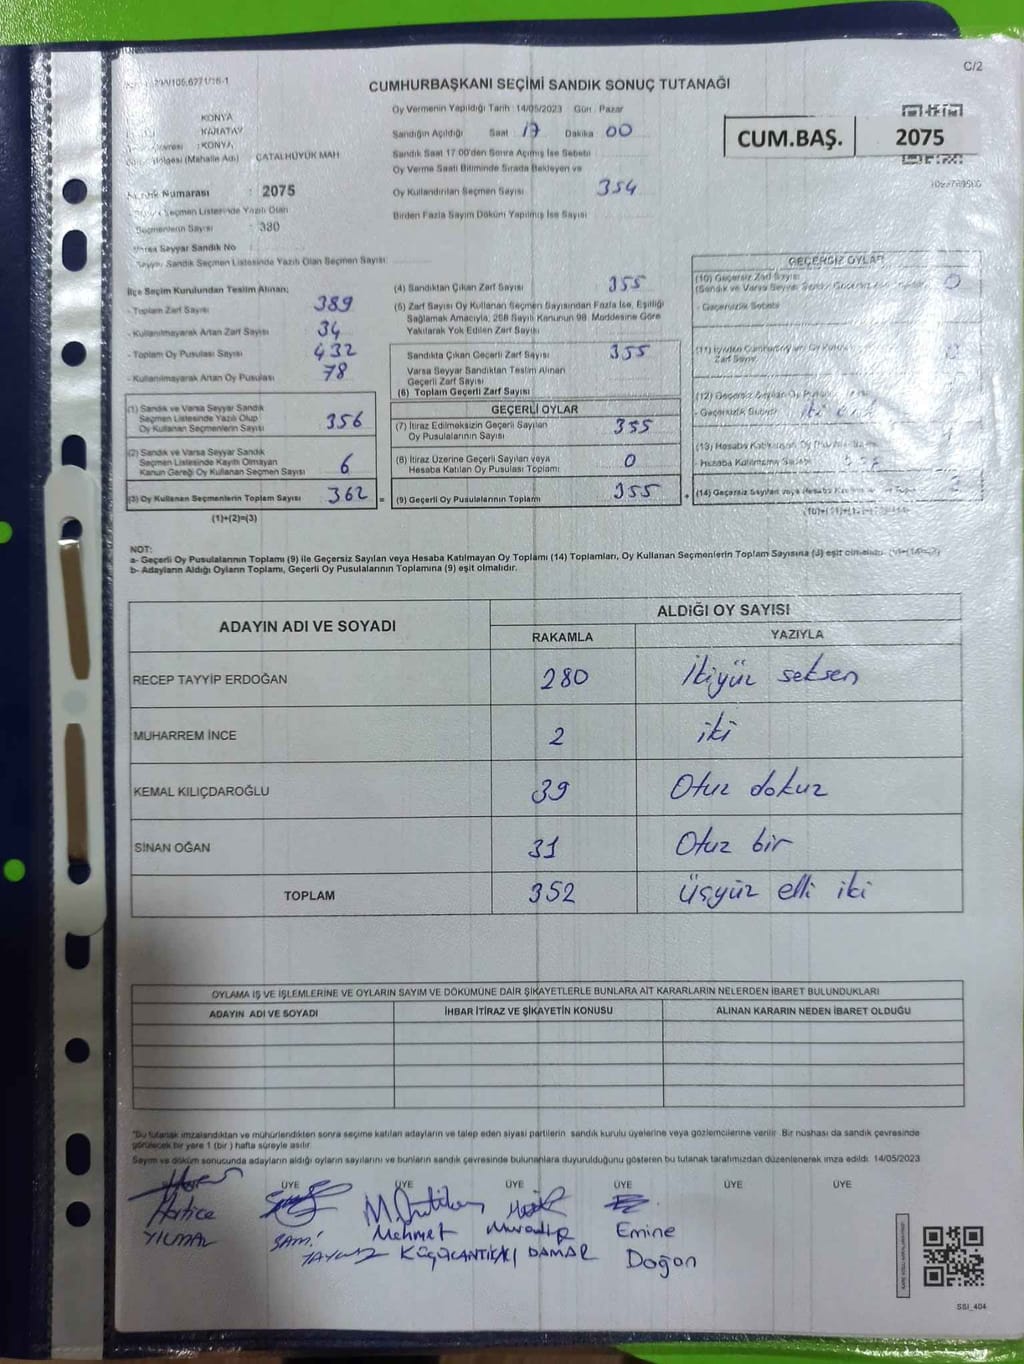 C/2
CUMHURBAŞKANI SEÇİMİ SANDIK SONUÇ TUTANAĞI
Oy Vermenin Yapıldığı Tarih : 14/05/2023 Gün : Pazar
KONYA
KARATAY
KONYA
(Mahalle Adı) ÇATALHÜYÜK MAH
Sandığın Açıldığı Saat 17 Dakika 00
CUM.BAŞ. 2075
Sandık Saat 17:00'den Sonra Açılmış İse Sebebi
Oy Verme Saati Bitiminde Sırada Bekleyen ve
Oy Kullandırılan Seçmen Sayısı 354
Birden Fazla Sayım Döküm Yapılmış İse Sayısı
Numarası : 2075
Seçmen Listesinde Yazılı Olan
Seçmenlerin Sayısı : 380
Varsa Seyyar Sandık No
Seyyar Sandık Seçmen Listesinde Yazılı Olan Seçmen Sayısı
İlçe Seçim Kurulundan Teslim Alınan;
- Toplam Zarf Sayısı 389
- Kullanılmayarak Artan Zarf Sayısı 34
- Toplam Oy Pusulası Sayısı 432
- Kullanılmayarak Artan Oy Pusulası 78
(1) Sandık ve Varsa Seyyar Sandık
Seçmen Listesinde Yazılı Olup
Oy Kullanan Seçmenlerin Sayısı 356
(2) Sandık ve Varsa Seyyar Sandık
Seçmen Listesinde Kayıtlı Olmayan
Kanun Gereği Oy Kullanan Seçmen Sayısı 6
(3) Oy Kullanan Seçmenlerin Toplam Sayısı 362 =
(1)+(2)=(3)
(4) Sandıktan Çıkan Zarf Sayısı 355
(5) Zarf Sayısı Oy Kullanan Seçmen Sayısından Fazla İse, Eşitliği
Sağlamak Amacıyla, 298 Sayılı Kanunun 98. Maddesine Göre
Yakılarak Yok Edilen Zarf Sayısı
Sandıkta Çıkan Geçerli Zarf Sayısı 355
Varsa Seyyar Sandıktan Teslim Alınan
Geçerli Zarf Sayısı
(6) Toplam Geçerli Zarf Sayısı
GEÇERLİ OYLAR
(7) İtiraz Edilmeksizin Geçerli Sayılan
Oy Pusulalarının Sayısı 355
(8) İtiraz Üzerine Geçerli Sayılan veya
Hesaba Katılan Oy Pusulası Toplamı 0
(9) Geçerli Oy Pusulalarının Toplamı 355 +
GEÇERSİZ OYLAR
(10) Geçersiz Zarf Sayısı
(Sandık ve Varsa Seyyar 0
- Geçersizlik Sebebi
(11)
Zarf Sayısı
(12) Geçersiz Sayılan Oy
- Geçersizlik Sebebi
(13) Hesaba
Hesaba
(14) Geçersiz Sayılan veya Hesaba
NOT:
a- Geçerli Oy Pusulalarının Toplamı (9) ile Geçersiz Sayılan veya Hesaba Katılmayan Oy Toplamı (14) Toplamları, Oy Kullanan Seçmenlerin Toplam Sayısına (3) eşit olmalıdır.
b- Adayların Aldığı Oyların Toplamı, Geçerli Oy Pusulalarının Toplamına (9) eşit olmalıdır.
ADAYIN ADI VE SOYADI ALDIĞI OY SAYISI
RAKAMLA YAZIYLA
RECEP TAYYİP ERDOĞAN 280 İkiyüz seksen
MUHARREM İNCE 2 iki
KEMAL KILIÇDAROĞLU 39 Otuz dokuz
SİNAN OĞAN 31 Otuz bir
TOPLAM 352 Üçyüz elli iki
OYLAMA İŞ VE İŞLEMLERİNE VE OYLARIN SAYIM VE DÖKÜMÜNE DAİR ŞİKAYETLERLE BUNLARA AİT KARARLARIN NELERDEN İBARET BULUNDUKLARI
ADAYIN ADI VE SOYADI İHBAR İTİRAZ VE ŞİKAYETİN KONUSU ALINAN KARARIN NEDEN İBARET OLDUĞU
*Bu tutanak imzalandıktan ve mühürlendikten sonra seçime katılan adayların ve talep eden siyasi partilerin sandık kurulu üyelerine veya gözlemcilerine verilir. Bir nüshası da sandık çevresinde
görülecek bir yere 1 (bir) hafta süreyle asılır.
Sayım ve döküm sonucunda adayların aldığı oyların sayılarını ve bunların sandık çevresinde bulunanlara duyurulduğunu gösteren bu tutanak tarafımızdan düzenlenerek imza edildi. 14/05/2023
ÜYE ÜYE ÜYE ÜYE ÜYE ÜYE
Hatice Sami Mehmet Emine
YILMAZ KÜÇÜKANTIKACI DAMAR Doğan
SSI_404